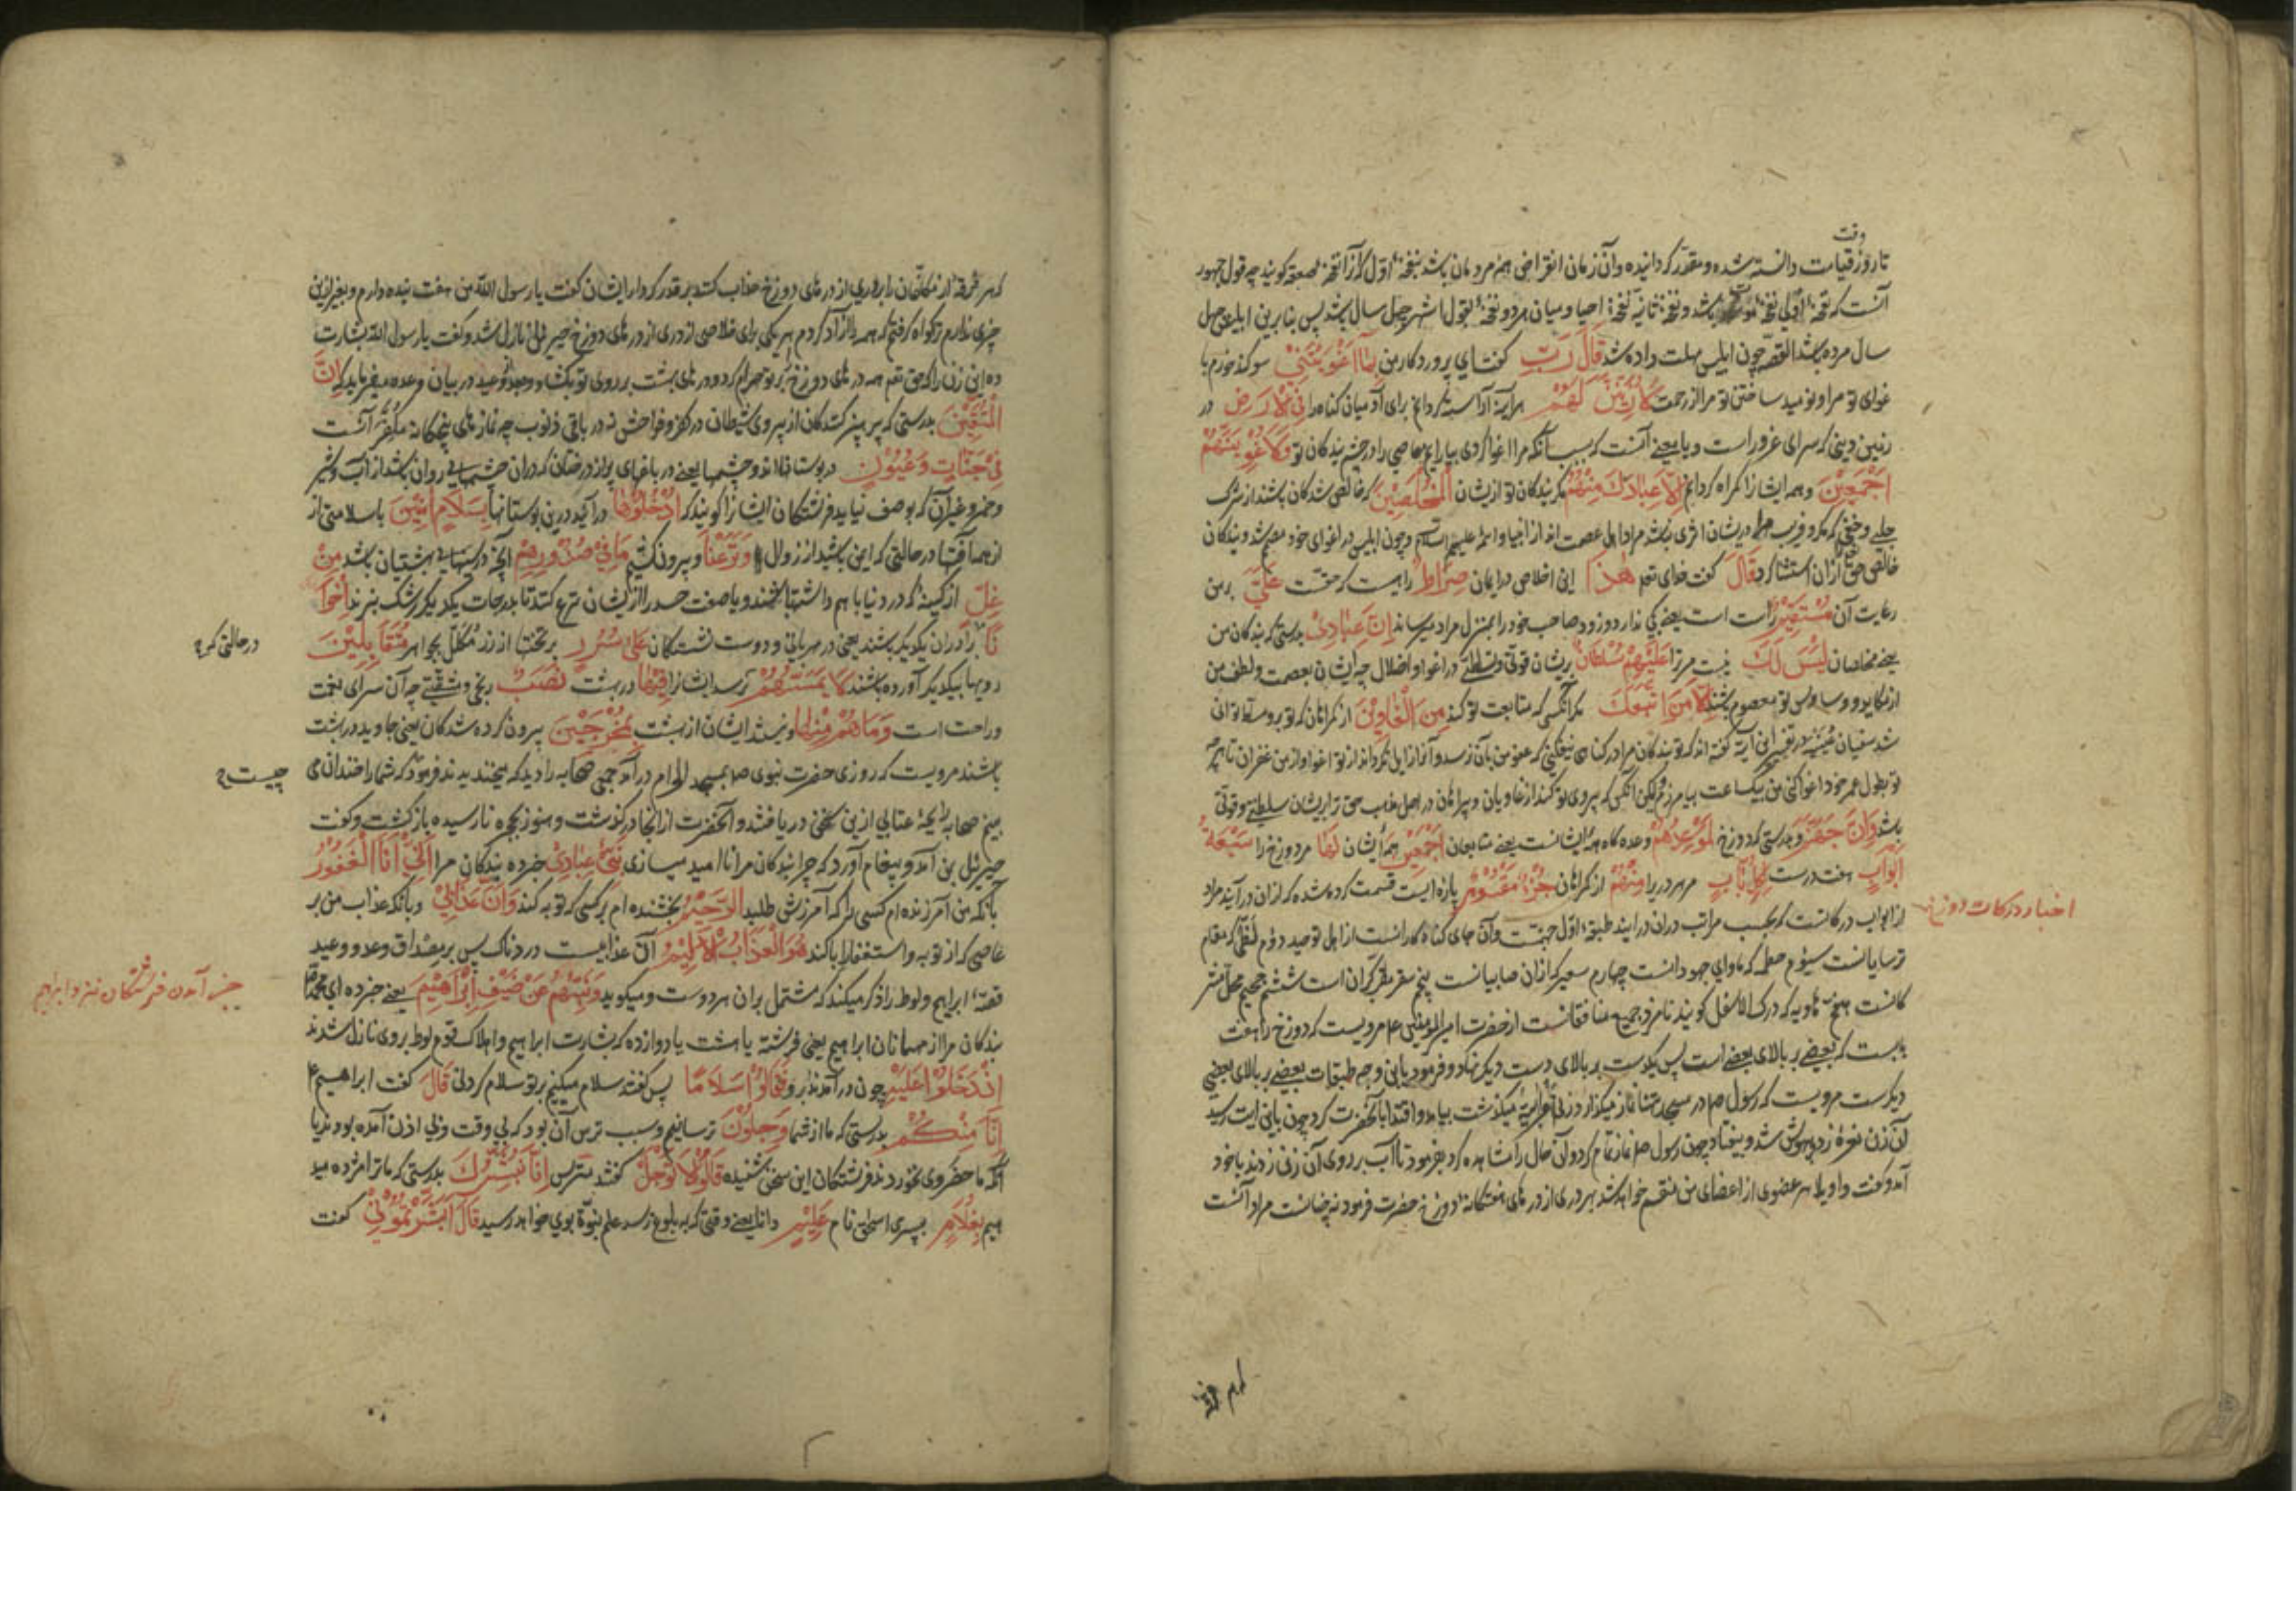 وقت
تا روز قیامت دانسته شده و مقدر گردانیده و آن زمان انقراض هم مردمان باشد بنفخهٔ اول که آنرا نفخهٔ صعقه گویند چه قول جمهور
آنست که نفخهٔ اولی نفخهٔ موت باشد و نفخهٔ ثانیه نفخهٔ احیا و میان هر دو نفخه بقول اشهر چهل سال باشد پس بنابرین ابلیس چهل
سال مرده باشد القصه چون ابلیس مهلت داده شد قَالَ رَبِّ گفت ای پروردگار من بِمَا أَغْوَيْتَنِي سوگند خورم با
غوای تو مرا و نومید ساختن تو مرا از رحمت لَأُزَيِّنَنَّ لَهُمْ هر آینه آراسته گردانم برای آدمیان گناه را فِي الْأَرْضِ در
زمین دینی که سرای غرور است و یا معنی آنست که بسبب آنکه مرا اغوا کردی بیارایم معاصی را در چشم بندگان تو وَلَأُغْوِيَنَّهُمْ
أَجْمَعِينَ و همه ایشانرا گمراه گردانم إِلَّا عِبَادَكَ مِنْهُمُ مگر بندگان تو از ایشان الْمُخْلَصِينَ که خالص شدگان باشند از شرک
جلی و خفی که مکر و فریب مرا در ایشان اثری نباشد مراد اهل عصمت اند از انبیا و ائمه علیهم السلام و چون ابلیس در اغوای خود مصر شد و بندگان
خالص حق را از آن استثنا کرد قَالَ گفت خدای تعالی هَذَا این اخلاص در ایمان صِرَاطٌ راهیست که حقست عَلَيَّ بر من
رعایت آن مُسْتَقِيمٌ راست است یعنی کجی ندارد و زود صاحب خود را بمنزل مراد میرساند إِنَّ عِبَادِي بدرستی که بندگان من
یعنی مخلصان لَيْسَ لَكَ نیست مر ترا عَلَيْهِمْ سُلْطَانٌ بریشان قوتی و تسلطی در اغوا و اضلال چه ایشان بعصمت و لطف من
از مکاید و وساوس تو معصوم باشند إِلَّا مَنِ اتَّبَعَكَ مگر آنکس که متابعت تو کند مِنَ الْغَاوِينَ از گمراهان که تو برو مستولی توانی
شد سفیان عیینه در تفسیر این آیه گفته اند که تو بندگان مرا در گناهی نیفکنی که عفو من بآن نرسد و آنرا زایل نگرداند از تو اغوا و از من غفران تا هرچه
تو بطول عمر خود اغوا کنی من بیکساعت بیامرزم و لیکن آنکس که پیروی تو کند از غاویان و بیراهان در اصل مذهب حق ترا بریشان سلطنتی و قوتی
باشد وَإِنَّ جَهَنَّمَ و بدرستی که دوزخ لَمَوْعِدُهُمْ وعده گاه همهٔ ایشانست یعنی متابعان أَجْمَعِينَ همهٔ ایشان لَهَا مر دوزخ را سَبْعَةُ
أَبْوَابٍ هفت درست لِكُلِّ بَابٍ مر هر در را مِنْهُمْ از گمراهان جُزْءٌ مَقْسُومٌ پاره ایست قسمت کرده شده که از آن در آیند مراد
از ابواب درکاتست که بحسب مراتب در آن در آیند طبقهٔ اول جهنمست و آن جای گناهکارانست از اهل توحید دوم لظی که مقام
ترسایانست سیوم حطمه که ماوای جهودانست چهارم سعیر که از آن صابیانست پنجم سقر مقر گبران است ششم جحیم محل مشر
کانست هفتم هاویه که درک الاسفل گویند نامزد جمیع منافقانست از حضرت امیر المومنین ع مرویست که دوزخ را هفت
بابست که بعضی بر بالای بعضی است پس یکدست بر بالای دست دیگر نهاد و فرمود باین وجه طبقات بعضی بر بالای بعضی
دیگرست مرویست که رسول ص در مسجد تنها نماز میگزارد زنی اعرابیه میگذشت بیامد و اقتدا بآنحضرت کرد چون باین آیت رسید
آن زن نعرهٔ زد و بیهوش شد و بیفتاد چون رسول ص نماز تمام کرد و آن حال را مشاهده کرد بفرمود تا آب بر روی آن زن زدند باخود
آمد و گفت واویلا هر عضوی از اعضای من منقسم خواهد شد بهر دری از درهای هفتگانهٔ دوزخ حضرت فرمود نه چنانست مراد آنست
اخبار درکات دوزخ
که هر فرقه
که هر فرقه از مکلفان را بر دری از درهای دوزخ عذاب کنند بر قدر کردار ایشان گفت یا رسول الله من هفت بنده دارم و بغیر ازین
چیزی ندارم ترا گواه گرفتم که همه را آزاد کردم هر یکی برای خلاصی از دری از درهای دوزخ جبرئیل نازل شد و گفت یا رسول الله بشارت
ده این زن را که حق تعالی همه درهای دوزخ بر تو حرام کرد و درهای بهشت بر روی تو بگشاد و بعد از وعید در بیان وعده میفرماید که إِنَّ
الْمُتَّقِينَ بدرستی که پرهیز کنندگان از پیروی شیطان در کفر و فواحش نه در باقی ذنوب چه نمازهای پنجگانه مکفر آنست
فِي جَنَّاتٍ وَعُيُونٍ در بوستانها اند و چشمها یعنی در باغهای پر از درختان که در آن چشمهای روان باشد از آب و شیر
و خمر و غیر آن که بوصف نیاید فرشتگان ایشانرا گویند که ادْخُلُوهَا در آیید درین بوستانها بِسَلَامٍ آمِنِينَ با سلامتی از
از همه آفتها در حالتی که ایمن باشید از زوال وَنَزَعْنَا و بیرون کشیم مَا فِي صُدُورِهِمْ آنچه در سینهای بهشتیان باشد مِنْ
غِلٍّ از کینه که در دنیا با هم داشته باشند و یا صفت حسد را از ایشان نزع کنند تا بدرجات یکدیگر رشک نبرند إِخْوَا
نًا برادران یکدیگر باشند یعنی در مهربانی و دوست نشستگان عَلَى سُرُرٍ بر تختها از زر مکلل بجواهر مُتَقَابِلِينَ
در حالتی که
رویها بیکدیگر آورده باشند لَا يَمَسُّهُمْ نرسد ایشانرا فِيهَا در بهشت نَصَبٌ رنجی و مشقتی چه آن سرای نعمت
و راحت است وَمَا هُمْ مِنْهَا و نیستند ایشان از بهشت بِمُخْرَجِينَ بیرون کرده شدگان یعنی جاوید در بهشت
باشند مرویست که روزی حضرت نبوی ص بمسجد الحرام در آمد جمعی صحابه را دید که میخندیدند فرمود که شما را خندان می
چیست
بینم صحابه رایحهٔ عتابی ازین سخن دریافتند و آنحضرت از آنجا درگذشت و هنوز بحجره نارسیده بازگشت و گفت
جبرئیل بمن آمد و پیغام آورد که چرا بندگان مرا ناامید میسازی نَبِّئْ عِبَادِي خبر ده بندگان مرا أَنِّي أَنَا الْغَفُورُ
بآنکه من آمرزنده ام کسی را که آمرزش طلبد الرَّحِيمُ بخشنده ام بر کسی که توبه کند وَأَنَّ عَذَابِي و بآنکه عذاب من بر
عاصی که از توبه و استغفار ابا کند هُوَ الْعَذَابُ الْأَلِيمُ آن عذابیست دردناک پس بر مصداق وعد و وعید
قصهٔ ابراهیم و لوط را ذکر میکند که مشتمل بر آن هر دوست و میگوید وَنَبِّئْهُمْ عَنْ ضَيْفِ إِبْرَاهِيمَ یعنی خبر ده ای محمد ص
خبر آمدن فرشتگان نزد ابراهیم
بندگان مرا از مهمانان ابراهیم یعنی فرشته یا هشت یا دوازده که بشارت ابراهیم و اهلاک قوم لوط بروی نازل شدند
إِذْ دَخَلُوا عَلَيْهِ چون در آمدند برو فَقَالُوا سَلَامًا پس گفتند سلام میکنیم بر تو سلام کردنی قَالَ گفت ابراهیم ع
إِنَّا مِنْكُمْ بدرستی که ما از شما وَجِلُونَ ترسانیم و سبب ترس آن بود که بی وقت و بی اذن آمده بودند یا
آنکه ماحضر وی نخوردند فرشتگان این سخن شنیده قَالُوا لَا تَوْجَلْ گفتند مترس إِنَّا نُبَشِّرُكَ بدرستی که ما ترا مژده مید
هیم بِغُلَامٍ بپسری اسحق نام عَلِيمٍ دانا یعنی وقتی که به بلوغ رسد علم نبوة بوی خواهد رسید قَالَ أَبَشَّرْتُمُونِي گفت